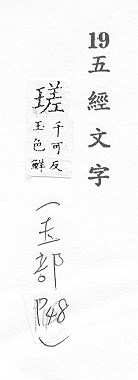 19五經文字
瑳千可反
玉色鮮
(玉部
P48)